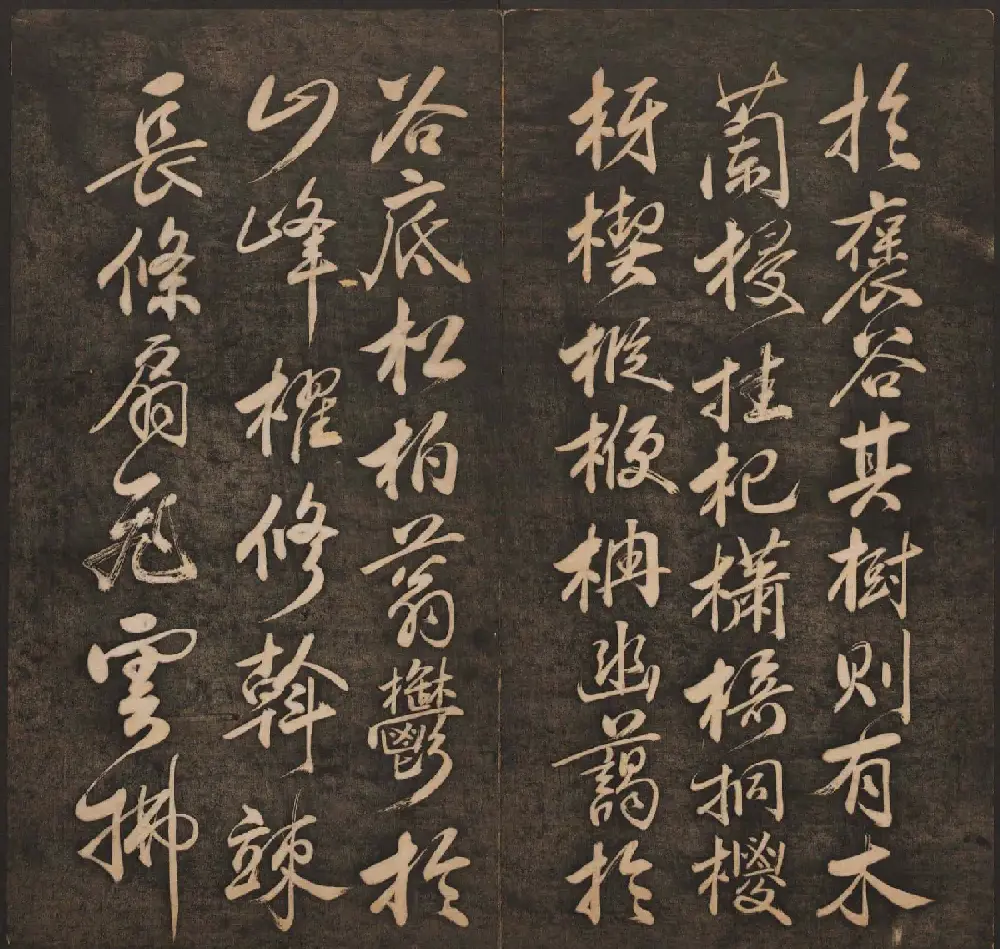 於褒谷其樹則有木
蘭梫桂杞櫹梧桐椶
枒楔樅楩柟幽藹於
谷底松柏蓊鬱於
山峰櫂修幹竦
長條扇飛雲拂